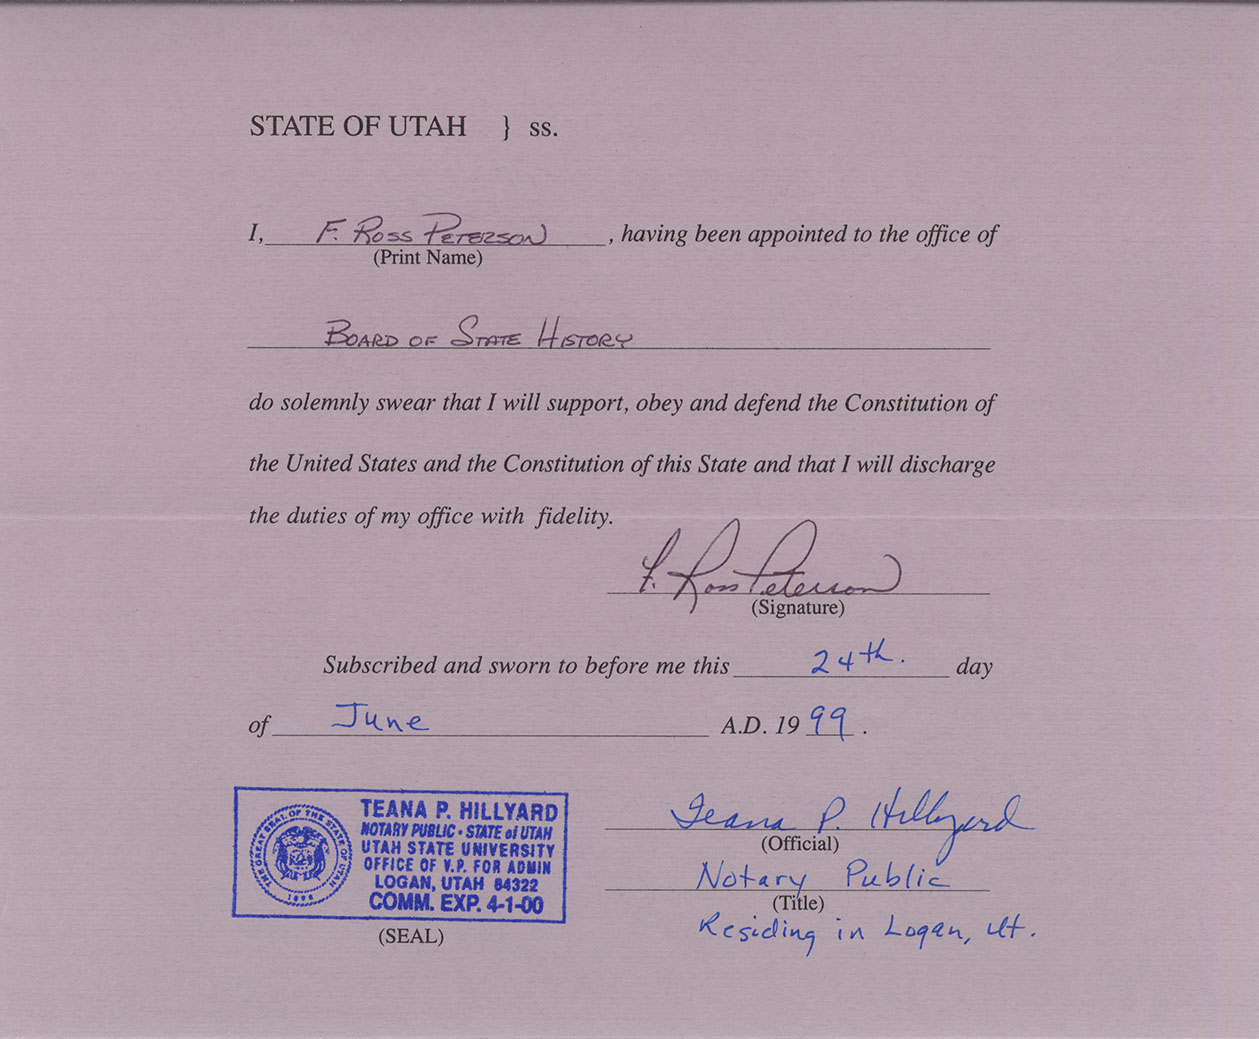 STATE OF UTAH } ss.
I, F. ROSS PETERSON, having been appointed to the office of
(Print Name)
BOARD OF STATE HISTORY
do solemnly swear that I will support, obey and defend the Constitution of
the United States and the Constitution of this State and that I will discharge
the duties of my office with fidelity.
F. Ross Peterson
(Signature)
Subscribed and sworn to before me this 24th. day
of June A.D. 1999.
TEANA P. HILLYARD
NOTARY PUBLIC • STATE of UTAH
UTAH STATE UNIVERSITY
OFFICE OF V.P. FOR ADMIN
LOGAN, UTAH 84322
COMM. EXP. 4-1-00
THE GREAT SEAL OF THE STATE OF UTAH
1896
(SEAL)
Teana P. Hillyard
(Official)
Notary Public
(Title)
Residing in Logan, Ut.